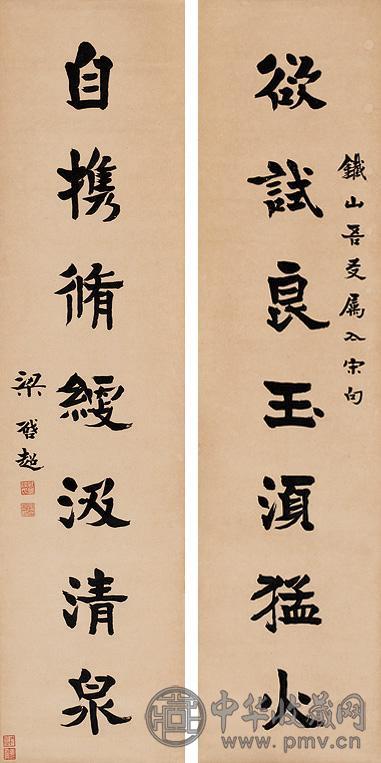 鐵山吾友属入宋句
欲試良玉須猛火
自攜脩綆汲清泉
梁啓超
中华收藏网
www.pmv.cn